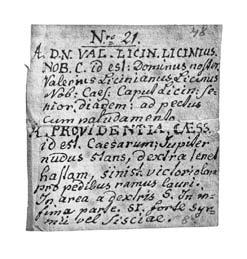 Nro 21.
A. DN. VAL. LICIN. LICINIUS.
NOB. C. id est: Dominus noster
Valerius Licinianus Licinius
Nob: Caes: Caput Licin: se-
nior, diadem: ad pectus
cum paludamento.
R. PROVIDENTIA. CAESS.
id est Caesarum; Jupiter
nudus stans, dextra tenet
hastam, sinist: victoriolam
pro pedibus ramus lauri.
In area a dextris S. In in-
fima parte. SI. forte Syr-
mii vel Sisciae.